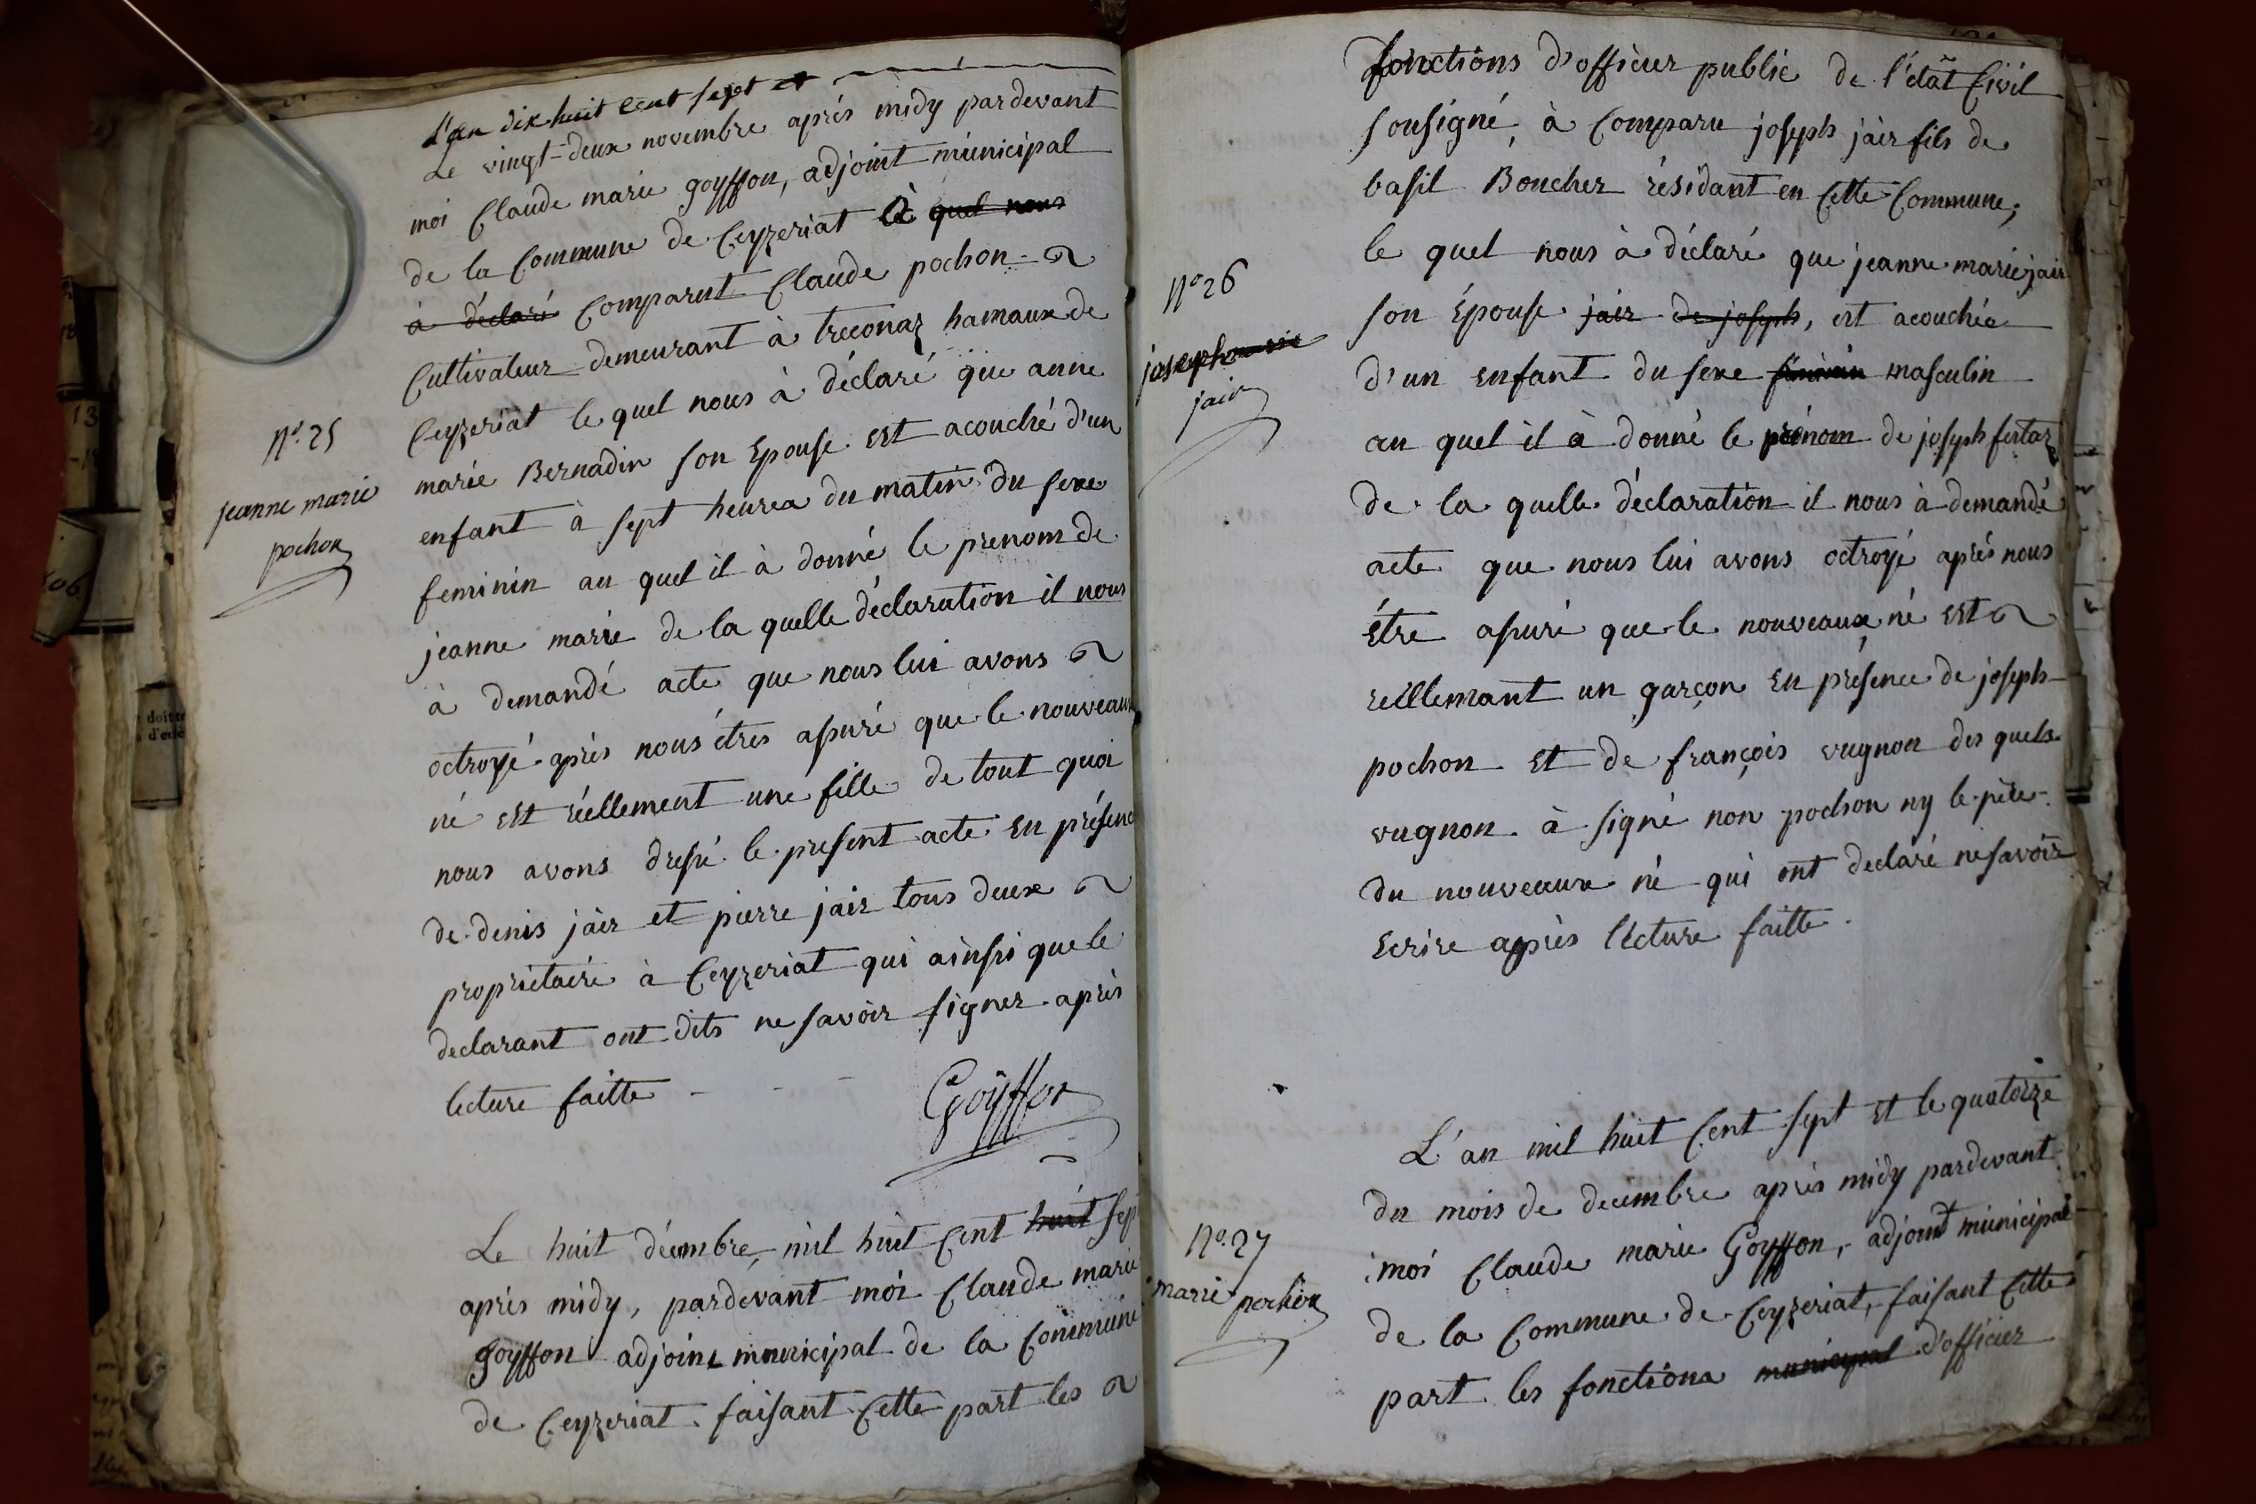 L'an dix huit cent sept et
Le vingt-deux novembre après midy pardevant
moi Claude marie goyffon, adjoint municipal
de la Commune de Ceyzeriat à quel nous
à déclaré Comparut Claude pochon
Cultivateur demeurant à treconaz hamaux de
Nº. 25
jeanne marie
pochon
Ceyzeriat le quel nous à déclaré que anne
marie Bernadin son Epouse est acouché d'un
enfant à sept heures du matin du sexe
feminin au quel il à donné le prenom de
jeanne marie de la quelle déclaration il nous
à demandé acte que nous lui avons
octroyé après nous étres assuré que le nouveaux
né est réellement une fille de tout quoi
nous avons dressé le present acte En présence
de denis jair et pierre jair tous deux
proprietaire à Ceyzeriat qui ainssi que le
declarant ont dits ne savoir signer après
lecture faitte
Goyffon
Le huit décembre, mil huit Cent huit sept
après midy, pardevant moi Claude marie
goyffon adjoint municipal de la Commune
de Ceyzeriat faisant cette part les
fonctions d'officier public de l'état Civil
sousigné, à Comparu joseph jair fils de
basil Boucher résidant en Cette Commune,
le quel nous à déclaré que jeanne marie jair
Nº 26
joseph
jair
son Épouse jair de joseph, est acouchée
d'un enfant du sexe féminin masculin
au quel il à donné le prénom de joseph
de la quelle déclaration il nous à demandé
acte que nous lui avons octroyé après nous
étre assuré que le nouveaux né est
reéllemant un garçon En présence de joseph
pochon et de françois vugnon des quels
vugnon à signé non pochon ny le père
du nouveaux né qui ont declaré ne savoir
Ecrire après lecture faitte.
L'an mil huit Cent sept et le quatorze
du mois de decembre après midy pardevant
Nº. 27
marie pochon
moi Claude marie Goyffon, adjoint municipal
de la Commune de Ceyzeriat, faisant Cette
part les fonctions municipal d'officier